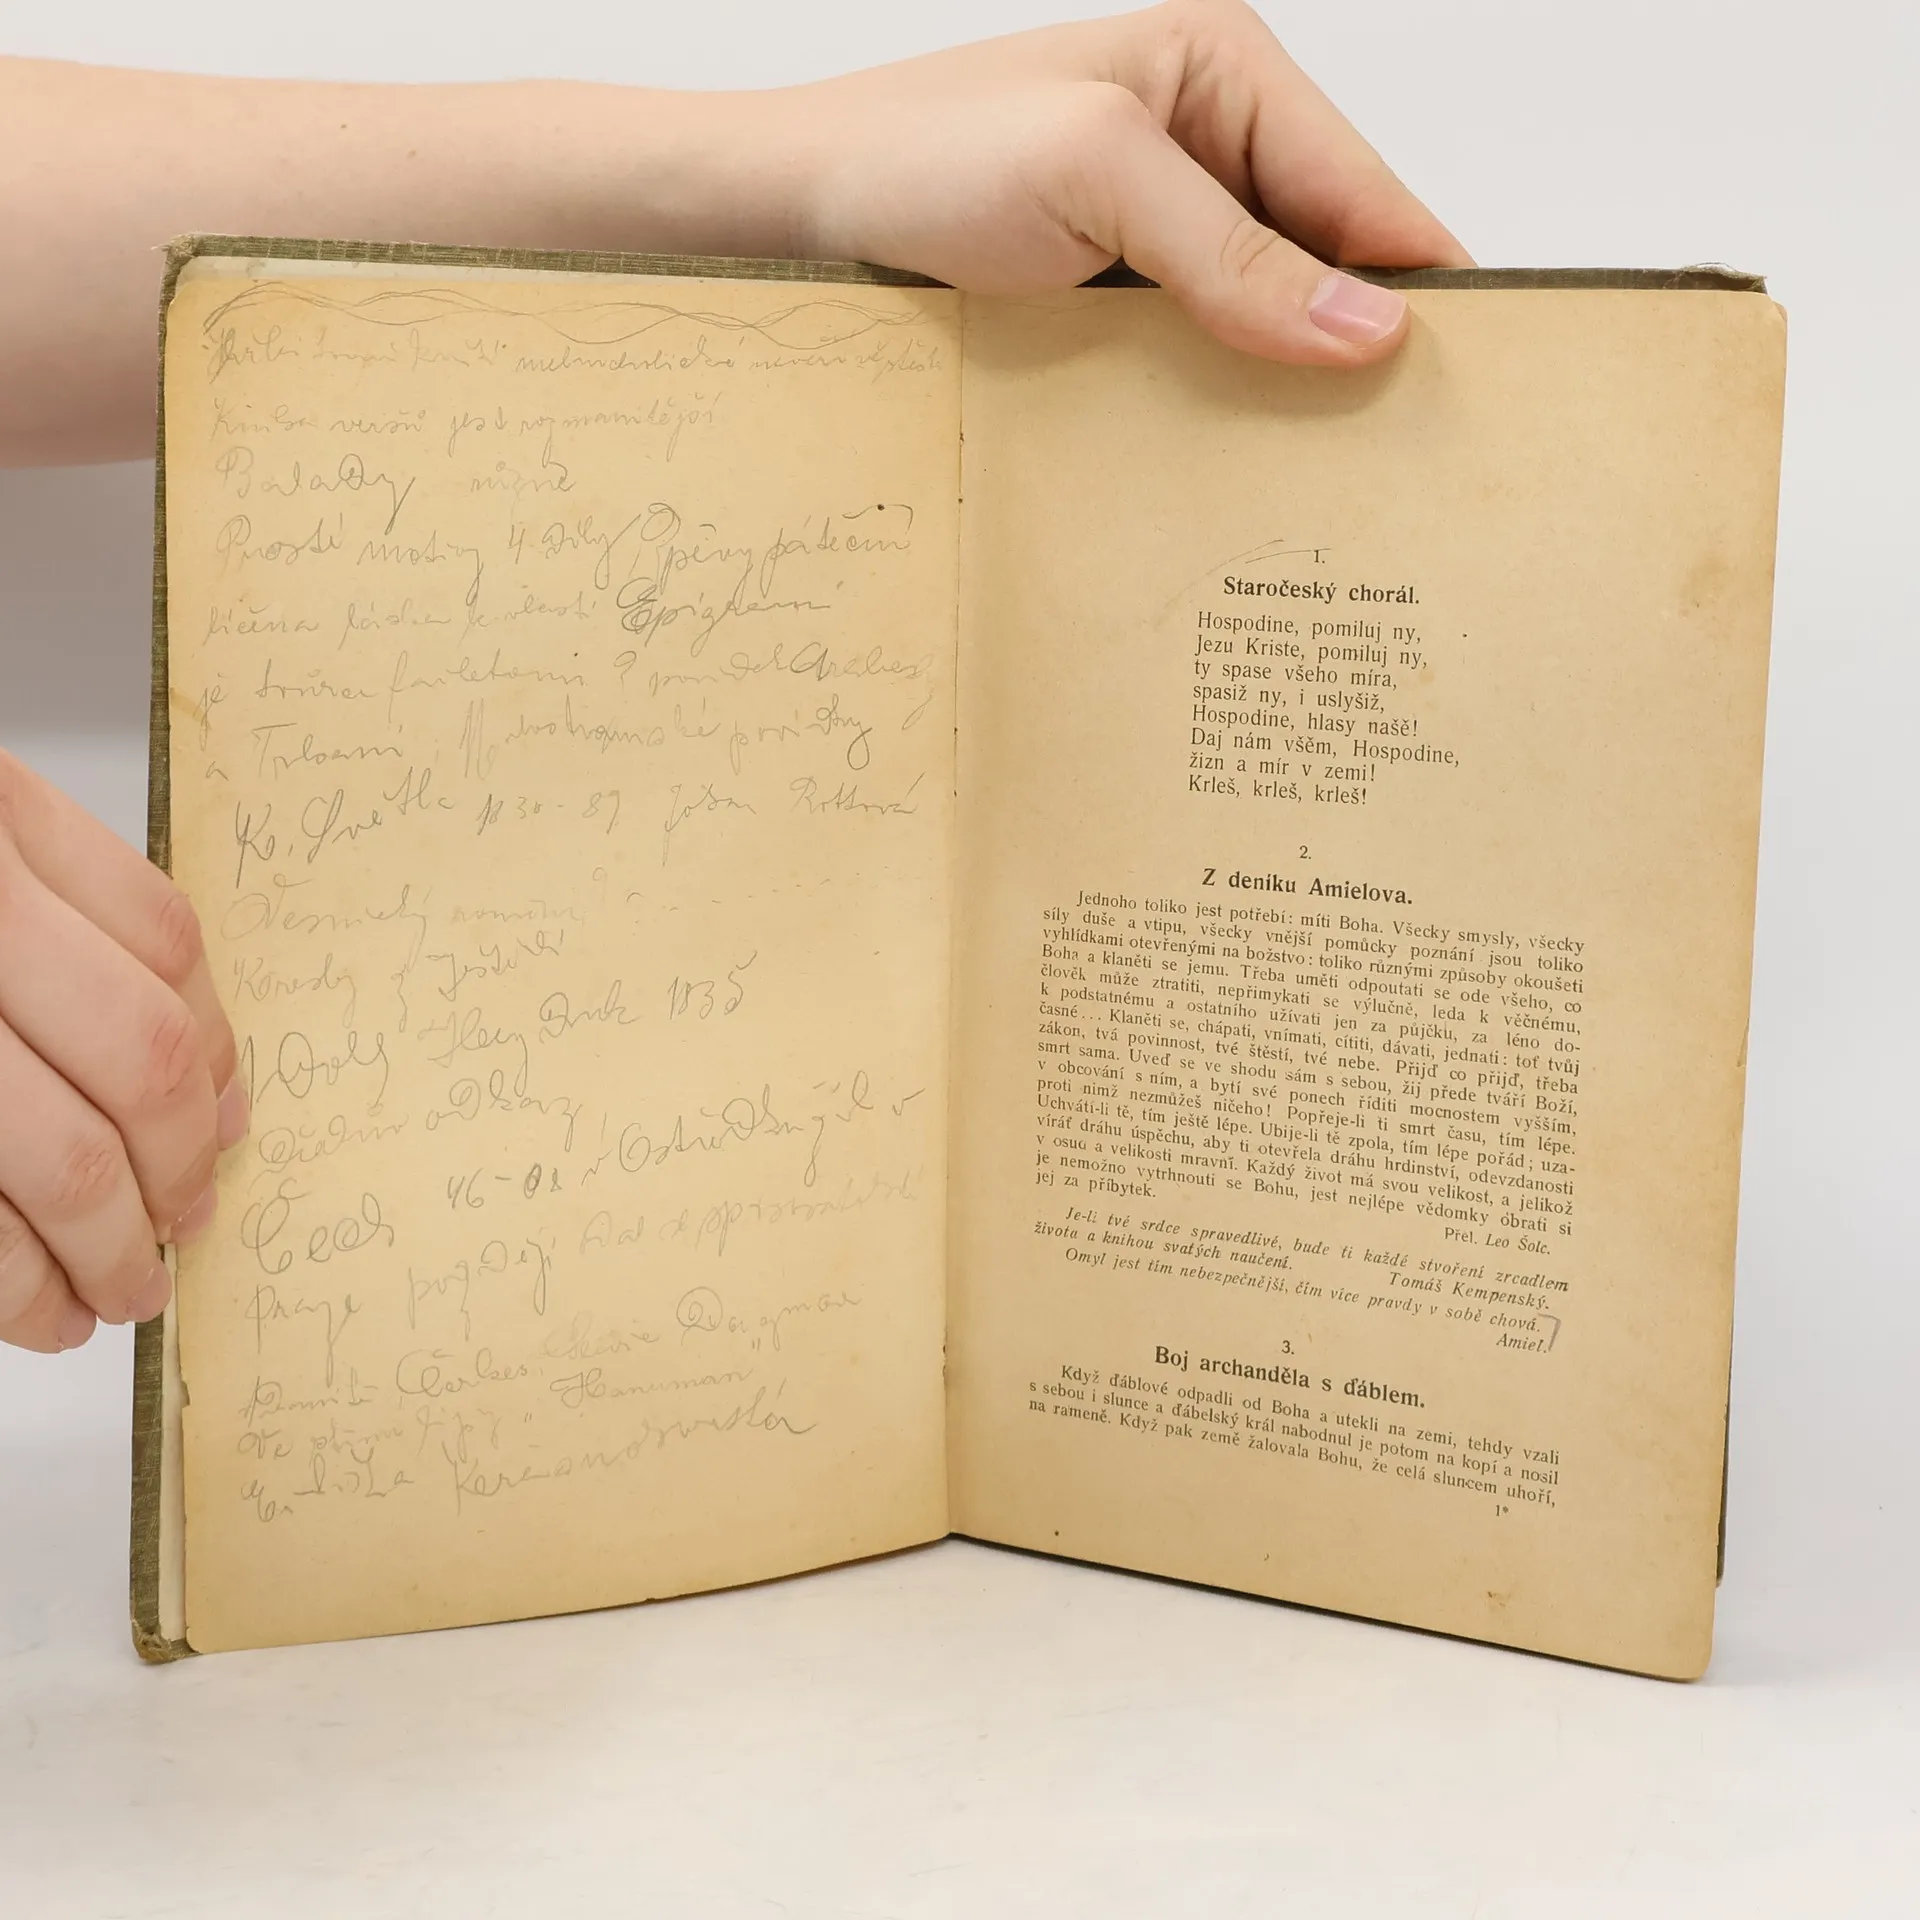 Kniha veršů jest rozmanitější
Balady různé
Prosté motivy 4 díly Zpěvy páteční
láska k vlasti Epigrami
je feuletoni ? povídek Arabesky
a Trhani, Malostranské povídky
K. Světlá 1830 - 99 Rottová
Vesnický román ?
Kresby z Ještědí
Adolf Heyduk 1835
Dědův odkaz
Čech 46-08 v Ostředku žil v
Praze později
Čerkes, Dagmar
Ve "Hanuman"
Eliška Krásnohorská
1.
Staročeský chorál.
Hospodine, pomiluj ny,
Jezu Kriste, pomiluj ny,
ty spase všeho míra,
spasiž ny, i uslyšiž,
Hospodine, hlasy našě!
Daj nám všěm, Hospodine,
žizn a mír v zemi!
Krleš, krleš, krleš!
2.
Z deníku Amielova.
Jednoho toliko jest potřebí: míti Boha. Všecky smysly, všecky
síly duše a vtipu, všecky vnější pomůcky poznání jsou toliko
vyhlídkami otevřenými na božstvo: toliko různými způsoby okoušeti
Boha a klaněti se jemu. Třeba uměti odpoutati se ode všeho, co
člověk může ztratiti, nepřimykati se výlučně, leda k věčnému,
k podstatnému a ostatního užívati jen za půjčku, za léno do-
časné... Klaněti se, chápati, vnímati, cítiti, dávati, jednati: toť tvůj
zákon, tvá povinnost, tvé štěstí, tvé nebe. Přijď co přijď, třeba
smrt sama. Uveď se ve shodu sám s sebou, žij přede tváří Boží,
v obcování s ním, a bytí své ponech říditi mocnostem vyšším,
proti nimž nezmůžeš ničeho! Popřeje-li ti smrt času, tím lépe.
Uchvátí-li tě, tím ještě lépe. Ubije-li tě zpola, tím lépe pořád; uza-
víráť dráhu úspěchu, aby ti otevřela dráhu hrdinství, odevzdanosti
v osud a velikosti mravní. Každý život má svou velikost, a jelikož
je nemožno vytrhnouti se Bohu, jest nejlépe vědomky obrati si
jej za příbytek.
Přel. Leo Šolc.
Je-li tvé srdce spravedlivé, bude ti každé stvoření zrcadlem
života a knihou svatých naučení.
Tomáš Kempenský.
Omyl jest tím nebezpečnější, čím více pravdy v sobě chová.
Amiel.
3.
Boj archanděla s ďáblem.
Když ďáblové odpadli od Boha a utekli na zemi, tehdy vzali
s sebou i slunce a ďábelský král nabodnul je potom na kopí a nosil
na rameně. Když pak země žalovala Bohu, že celá sluncem uhoří,
1*